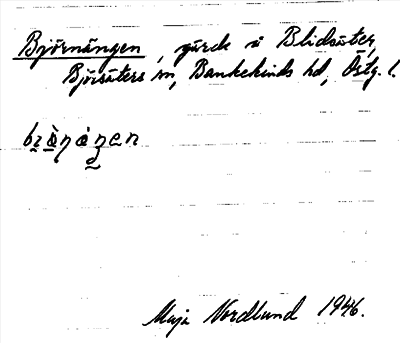 Björnängen, gärde i Blidsäter,
Björsäters sn, Bankekinds hd, Östg. l.
Maja Nordlund 1946.